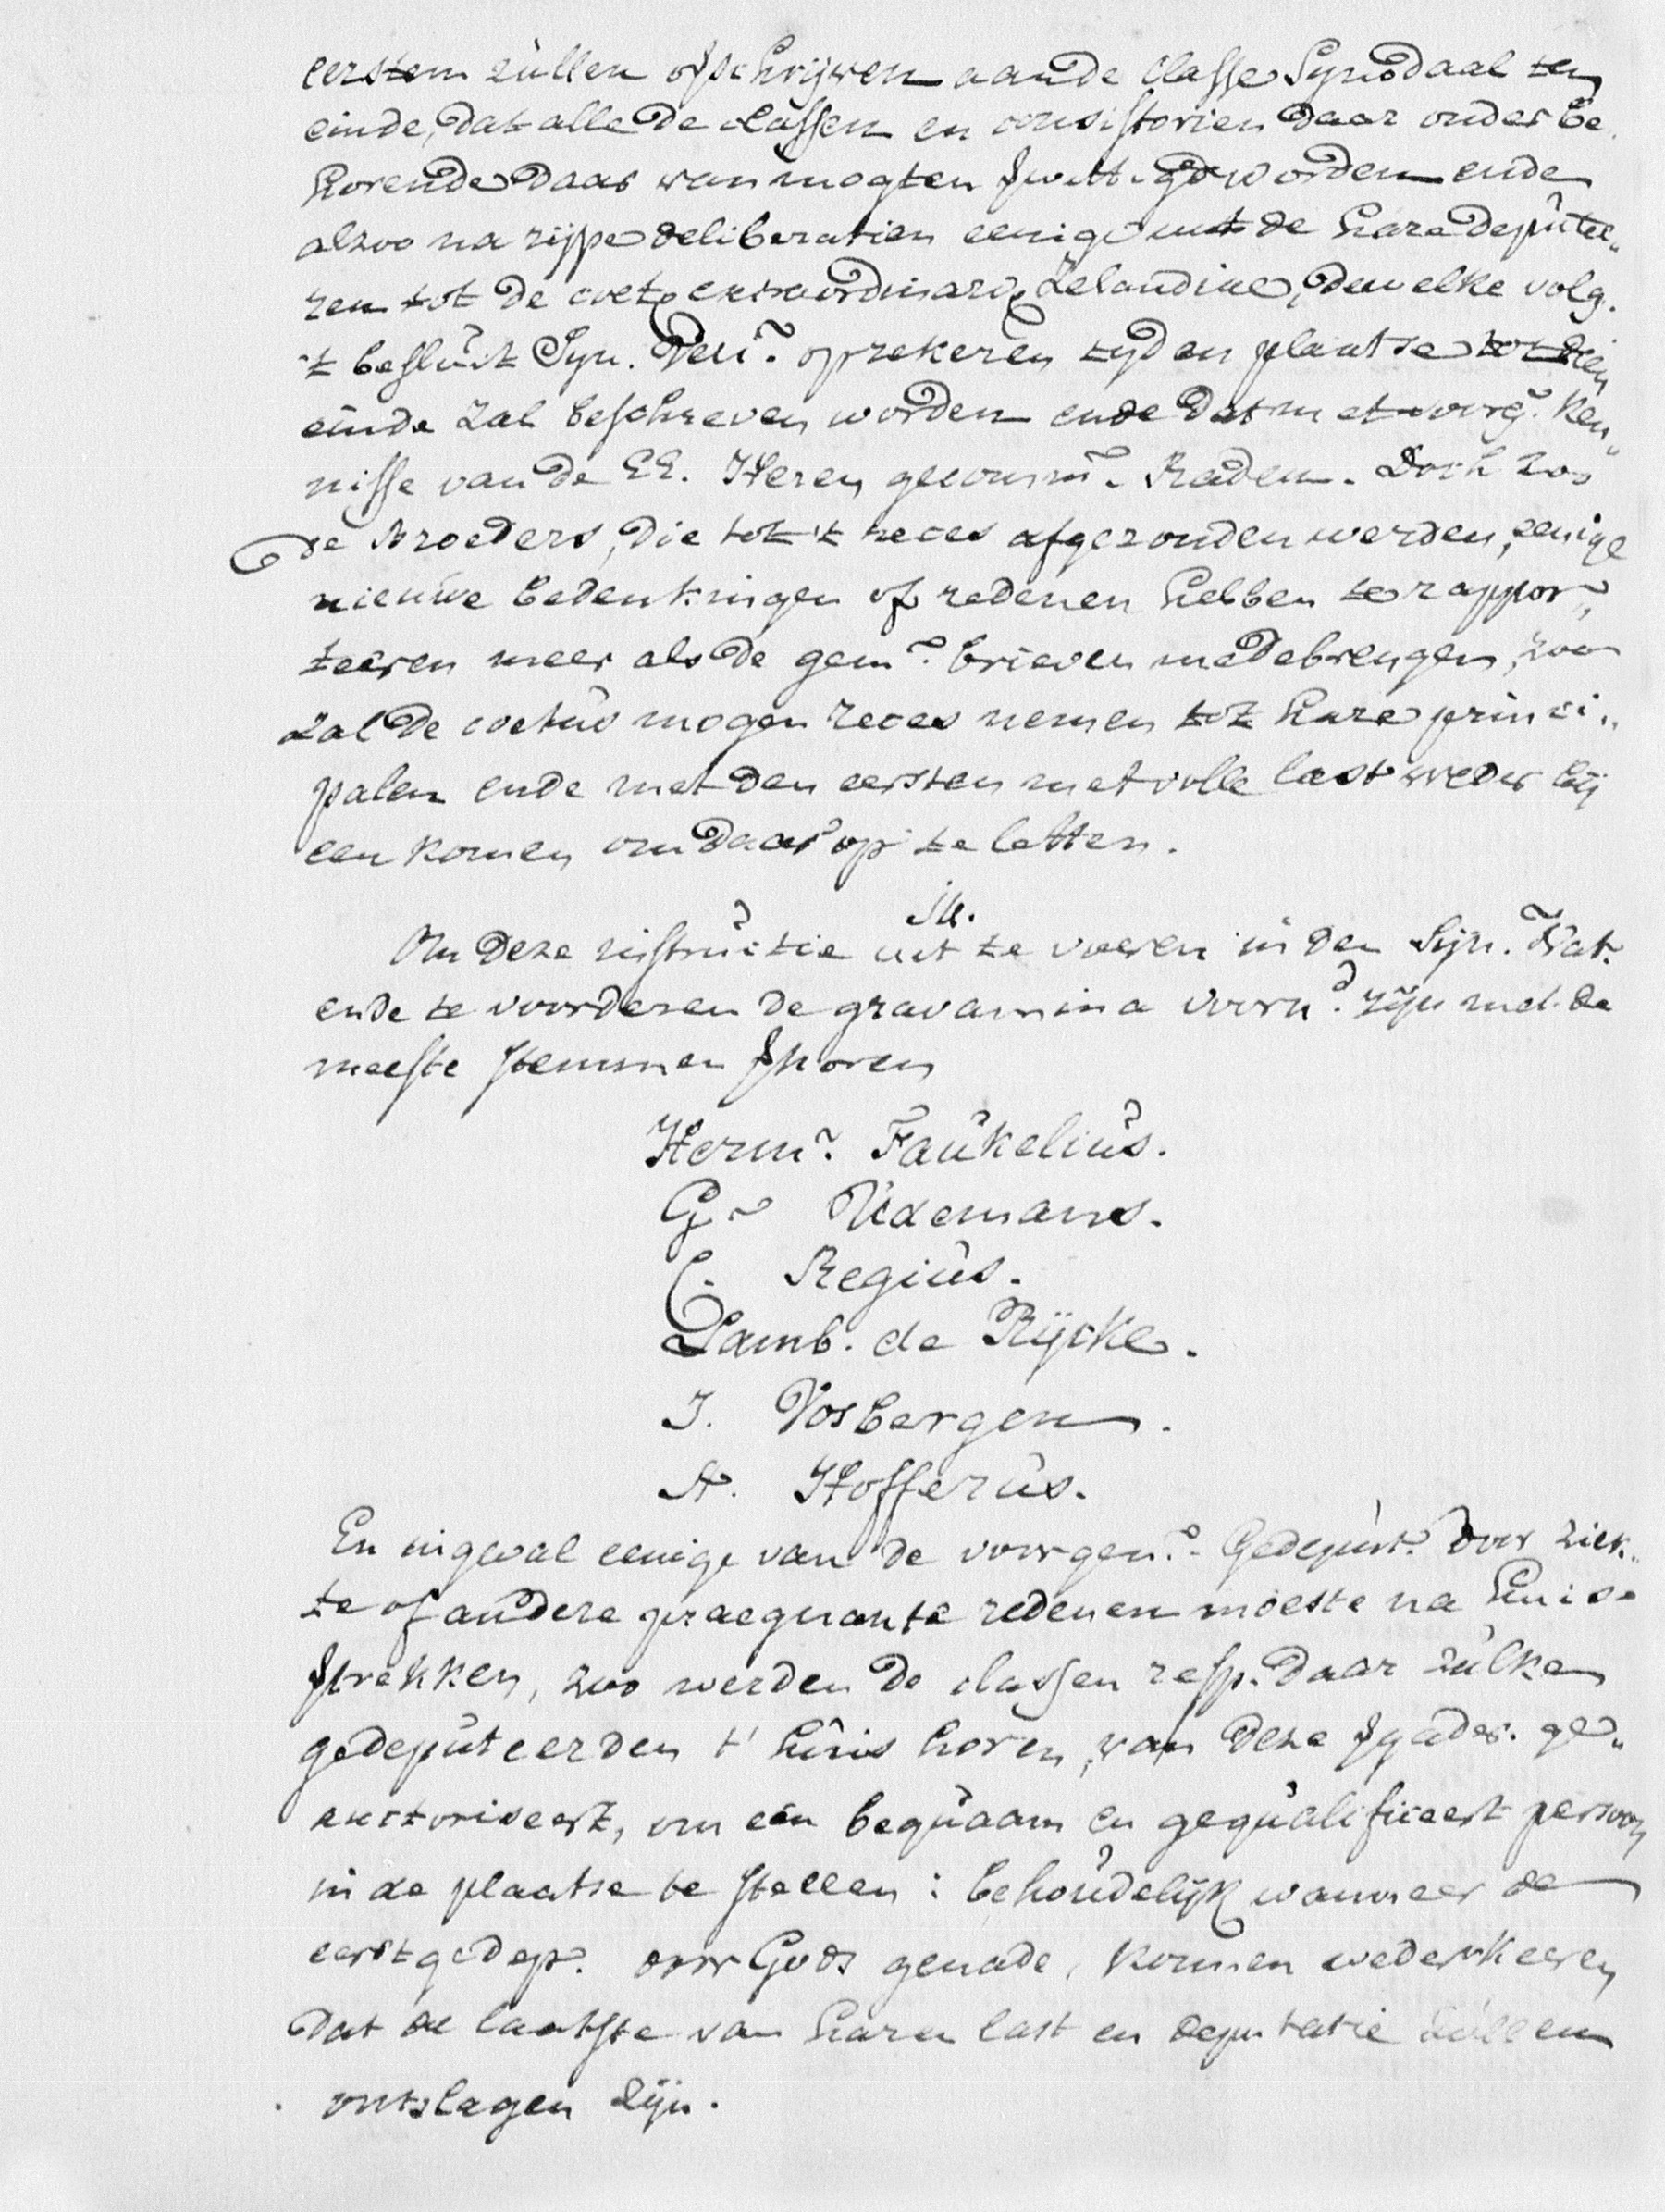 eersten zullen opschrijven aan de Classe Synodaal ten
einde, dat alle de Classen en consistorien daar onder be
horende daar van mogten verwittigd worden ende
alzoo na rijpe deliberatien eenige uit de hare deputee„
ren tot de coet. extraordinarie Zelandiae, dewelke volg.
't besluit Syn. op zekeren tyd en plaatse tot dien
einde zal beschreven worden ende dat met voorg. ken„
nisse van de EE. Heren gecomm. Raden. Doch zoo
de Broeders, die tot 't reces afgezonden werden, eenige
nieuwe bedenkingen of redenen hebben te rappor„
teeren meer als de gem. brieven medebrengen, zoo
zal de coetus mogen reces nemen tot hare princi„
palen ende met den eersten met volle last weder bij
een komen om daar op te letten.
Om deze instructie uit te voeren in den Syn. Nat.
ende te voorderen de gravamina voorn. zijn met de
meeste stemmen
Herm. Faukelius.
G. Udemans.
C. Regius.
Lamb. de Rijcke.
J. Vosbergen.
A. Hofferus.
En ingeval eenige van de voorgen. Gedeput. door ziek„
te of andere praegnante redenen moeste na huis
trekken, zoo werden de classen resp. daar zulke
gedeputeerden t' huis horen, van deze vgader. ge„
auctoriseert, om een bequaam en gequalificeert persoon
in de plaatse te stellen: behoudelijk wanneer de
eerst gedep. door Gods genade, konnen wederkeeren
dat de laatste van haren last en deputatie zullen
ontslagen zijn.